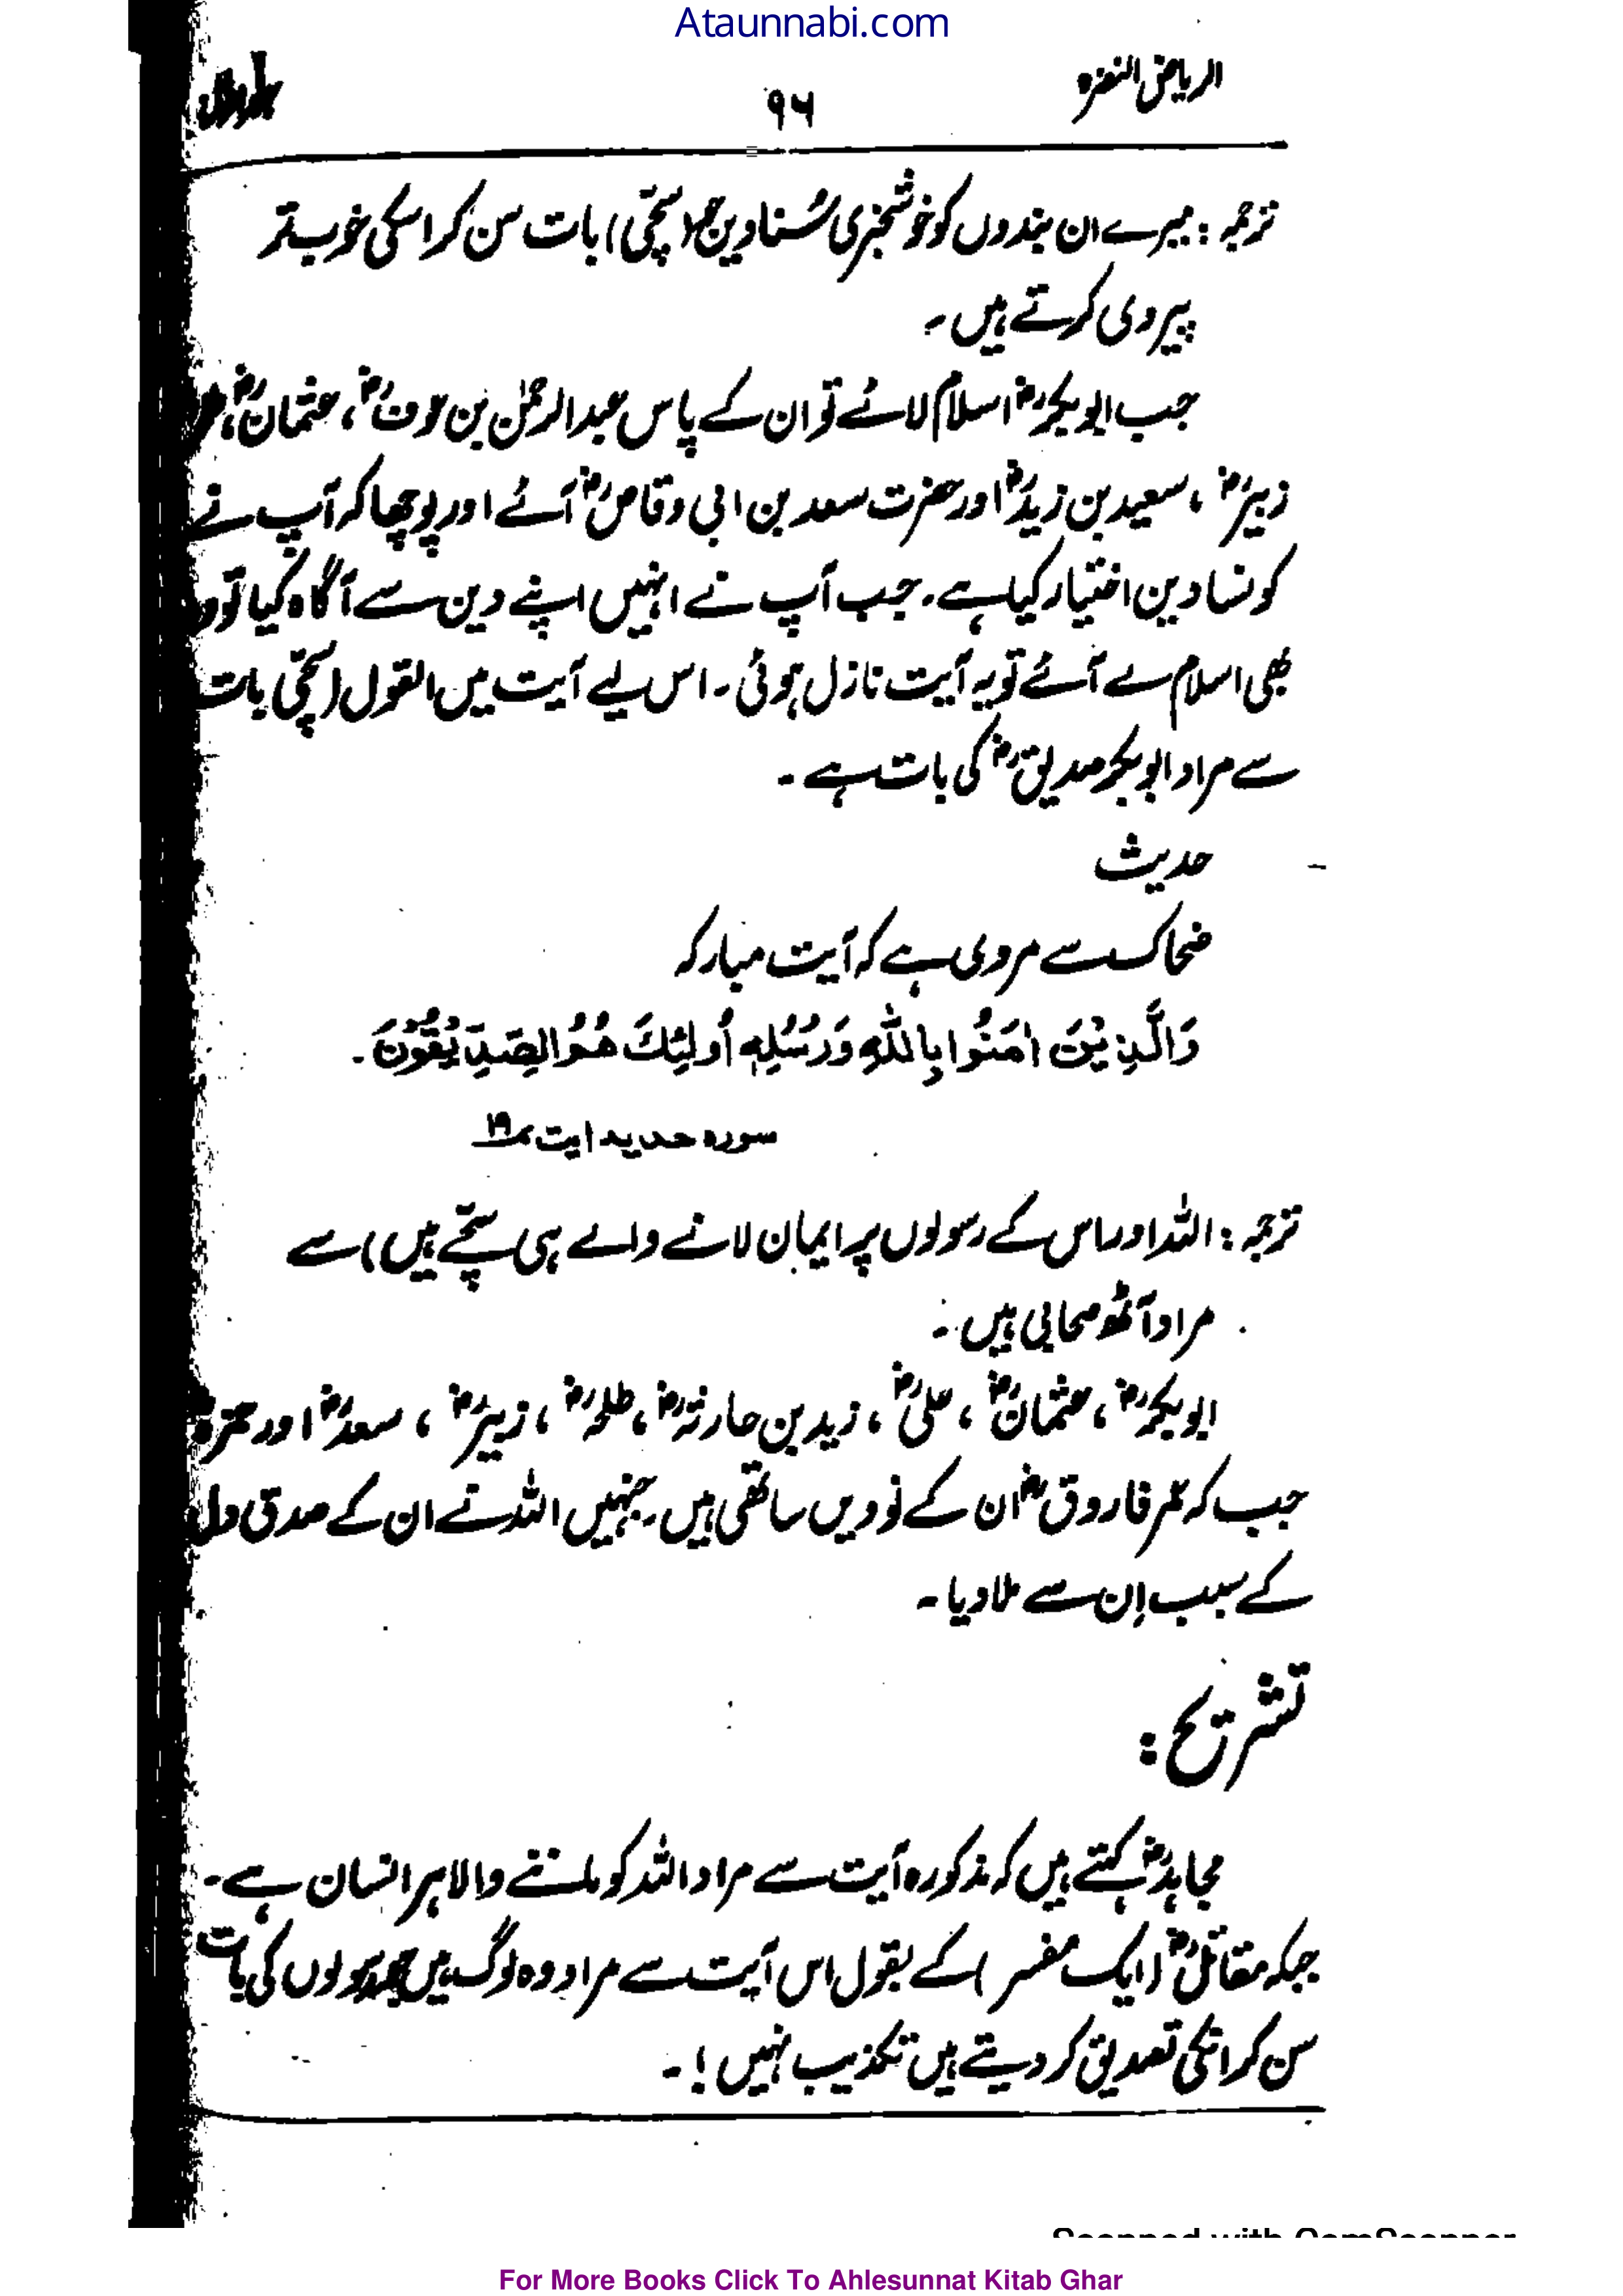 Ataunnabi.com
الریاض النضرہ ۹۶ جلد اول
ترجمہ : میرے ان بندوں کو خوشخبری سُنا دیں جو (سچّی) بات سن کر اسکی خوب تر
پیروی کرتے ہیں۔
جب ابوبکرؓ اسلام لائے تو ان کے پاس عبدالرحمٰن بن عوفؓ، عثمانؓ،
زبیرؓ، سعید بن زیدؓ اور حضرت سعد بن ابی وقاصؓ آئے اور پوچھا کہ آپ نے
کونسا دین اختیار کیا ہے۔ جب آپ نے انہیں اپنے دین سے آگاہ کیا تو وہ
بھی اسلام لے آئے تو یہ آیت نازل ہوئی۔ اس لیے آیت میں القول (سچّی بات
سے مراد ابوبکر صدیقؓ کی بات ہے۔
حدیث
ضحاک سے مروی ہے کہ آیت مبارکہ
وَالَّذِیْنَ اٰمَنُوا بِاللّٰهِ وَرُسُلِهٖ اُولٰئِكَ هُمُ الصِّدِّیْقُوْنَ۔
سورہ حدید ایت ۱۹
ترجمہ : اللہ اور اس کے رسولوں پر ایمان لانے والے ہی سچّے ہیں) سے
مراد آٹھ صحابی ہیں۔
ابوبکرؓ، عثمانؓ، علیؓ، زید بن حارثہؓ، طلحہؓ، زبیرؓ، سعدؓ اور حمزہؓ
جب کہ عمر فاروقؓ ان کے نویں ساتھی ہیں۔ جنہیں اللہ نے ان کے صدق دل
کے سبب اِن سے ملا دیا۔
تشریح :
مجاہدؓ کہتے ہیں کہ مذکورہ آیت سے مراد اللہ کو ماننے والا ہر انسان ہے۔
جبکہ مقاتلؓ (ایک مفسر) کے بقول اس آیت سے مراد وہ لوگ ہیں جو رسولوں کی بات
سن کر انکی تصدیق کر دیتے ہیں تکذیب نہیں !۔
Scanned with CamScanner
For More Books Click To Ahlesunnat Kitab Ghar